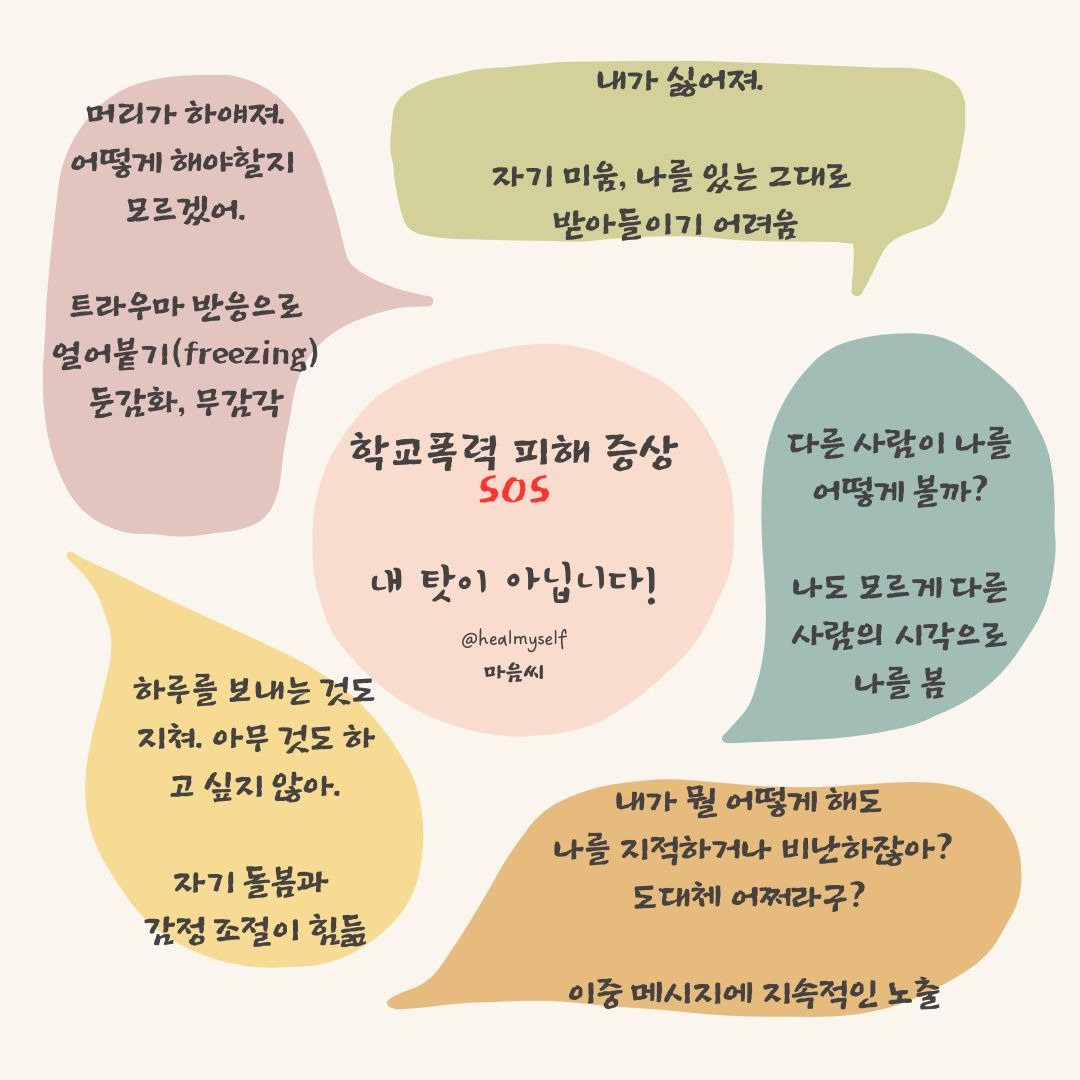 머리가 하얘져.
어떻게 해야할지
모르겠어.
트라우마 반응으로
얼어붙기(freezing)
둔감화, 무감각
내가 싫어져.
자기 미움, 나를 있는 그대로
받아들이기 어려움
학교폭력 피해 증상
SOS
내 탓이 아닙니다!
@healmyself
마음씨
다른 사람이 나를
어떻게 볼까?
나도 모르게 다른
사람의 시각으로
나를 봄
하루를 보내는 것도
지쳐. 아무 것도 하
고 싶지 않아.
자기 돌봄과
감정 조절이 힘듦
내가 뭘 어떻게 해도
나를 지적하거나 비난하잖아?
도대체 어쩌라구?
이중 메시지에 지속적인 노출